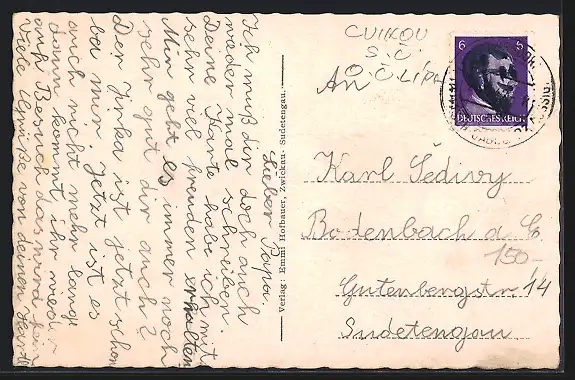 Lieber Papa.
Ich muß dir doch auch
wieder mal schreiben.
Deine Karte habe ich mit
sehr viel freuden erhalten
Mir geht es immer noch
sehr gut dir auch?
Der Jirka ist jetzt schon
bei mir. Jetzt ist es
auch nicht mehr lange
dann kommt ihr wieder
auf Besuch das wird fein
Viele Grüße von deinen
Verlag: Emmi Hofbauer, Zwickau, Sudetengau.
CVIKOV
S.Č.
O. Č. LÍPA
6 6
DEUTSCHES REICH
An
Karl Šedivy
Bodenbach a. E
150-
Gutenbergstr 14
Sudetengau